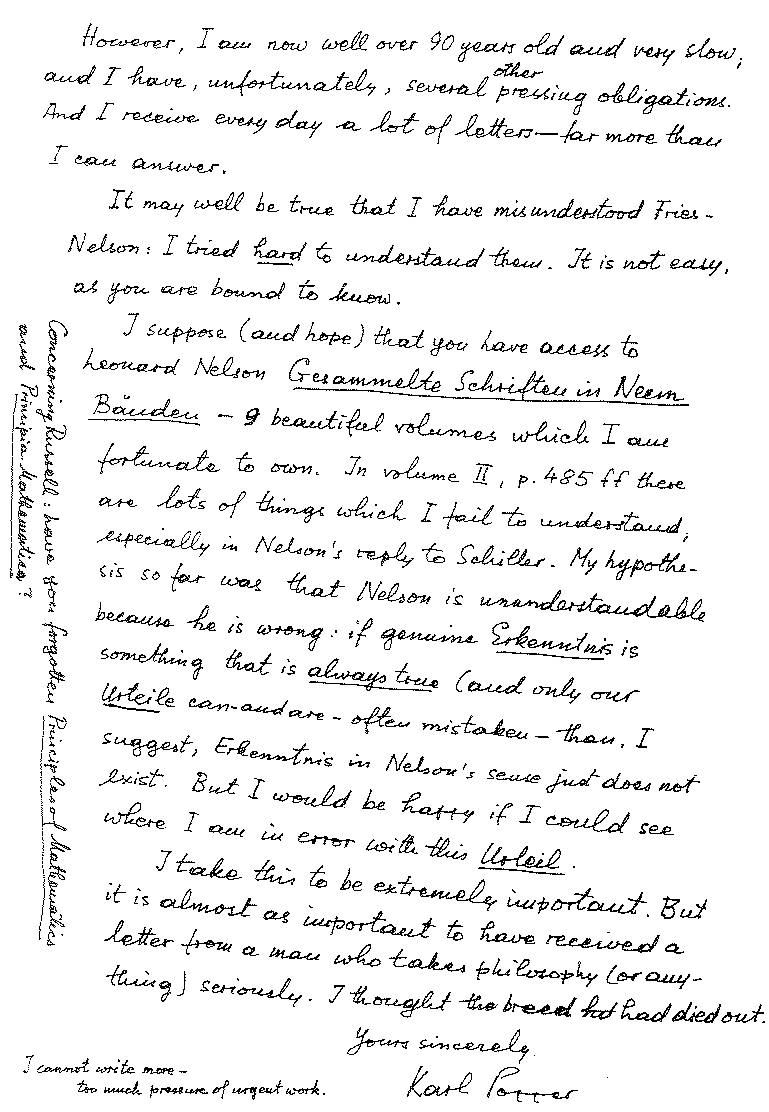 However, I am now well over 90 years old and very slow,
other
and I have, unfortunately, several pressing obligations.
And I receive every day a lot of letters — far more than
I can answer.
It may well be true that I have misunderstood Fries-
Nelson: I tried hard to understand them. It is not easy,
as you are bound to know.
I suppose (and hope) that you have access to
Leonard Nelson Gesammelte Schriften in Neun
Bänden – 9 beautiful volumes which I am
fortunate to own. In volume II, p. 485 ff there
are lots of things which I fail to understand,
especially in Nelson's reply to Schiller. My hypothe-
sis so far was that Nelson is ununderstandable
because he is wrong: if genuine Erkenntnis is
something that is always true (and only our
Urteile can-and are - often mistaken – than, I
suggest, Erkenntnis in Nelson's sense just does not
exist. But I would be happy if I could see
where I am in error with this Urteil.
I take this to be extremely important. But
it is almost as important to have received a
letter from a man who takes philosophy (or any-
thing) seriously. I thought the breed had died out.
Yours sincerely
Karl Popper
I cannot write more –
too much pressure of urgent work.
Concerning Russell: have you forgotten Principles of Mathematics
and Principia Mathematica?